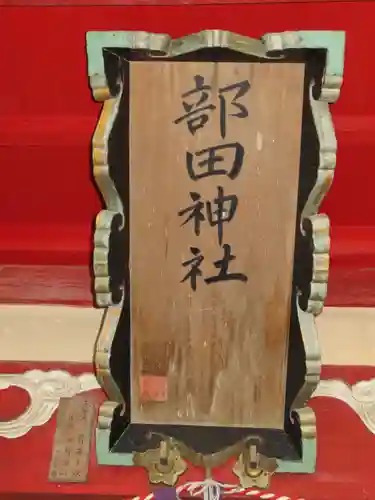 部田神社